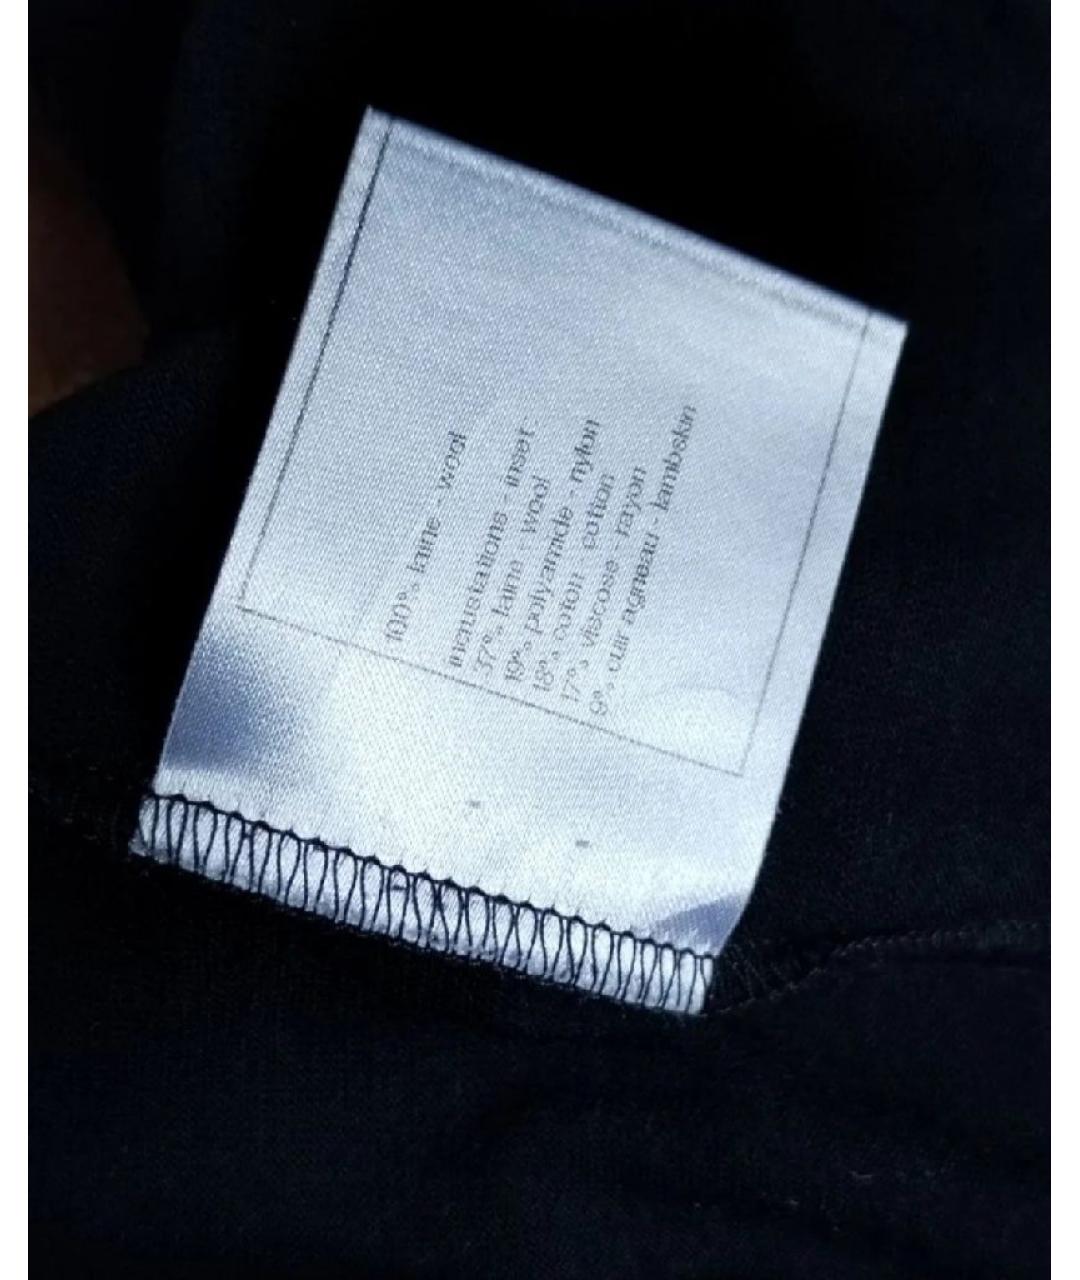 100% laine - wool
incrustations - inset
37% laine - wool
19% polyamide - nylon
18% coton - cotton
17% viscose - rayon
9% cuir agneau - lambskin